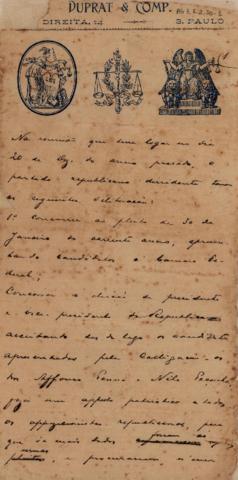 DUPRAT & COMP.
DIREITA, 14 S. PAULO
Na reunião que teve logar no dia
20 de Dez. do anno passado, o
partido republicano dissidente tomou
as seguintes deliberações:
1ª Concorrer ao pleito de 30 de
Janeiro do corrente anno, apresen
tando candidatos á Camara Fe
deral;
Concorrer a eleição de presidente
e vice-presidente da Republica
acceitando desde logo os candidatos
apresentados pela Colligação - os
drs Affonso Penna e Nilo Peçanha,
um appello patriotico a todos
os republicanos, para
que
urnas